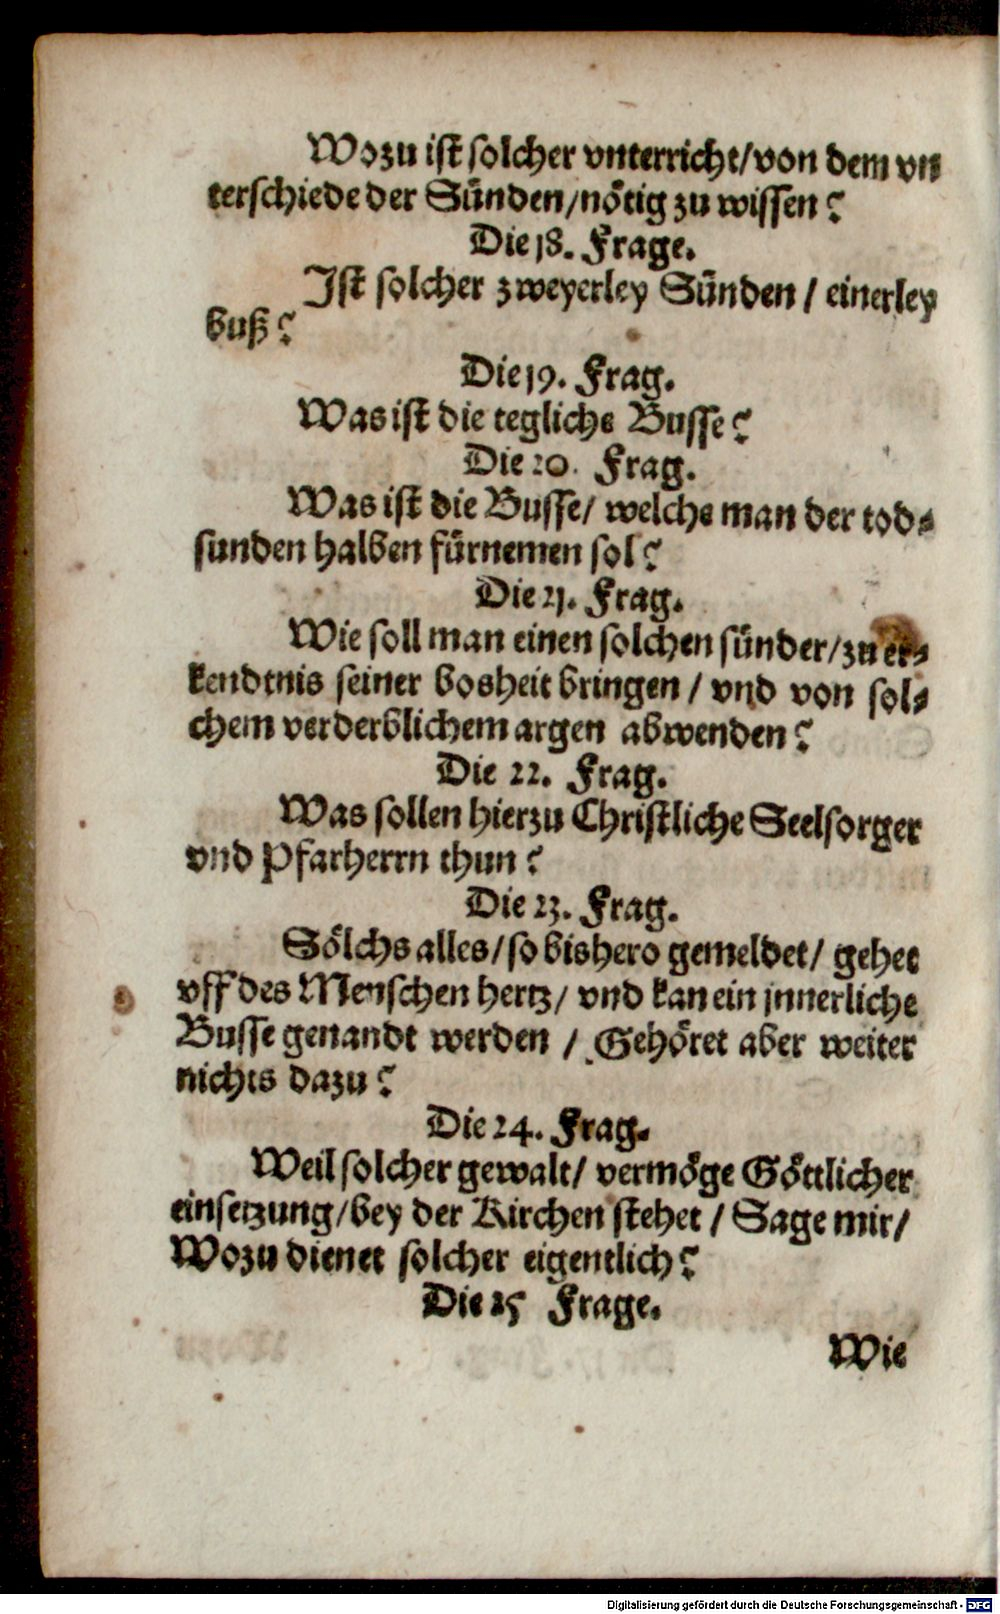 Wozu ist solcher vnterricht/von dem vn
terschiede der Sünden/nötig zu wissen?
Die 18. Frage.
Ist solcher zweyerley Sünden / einerley
buß?
Die 19. Frag.
Was ist die tegliche Busse?
Die 20. Frag.
Was ist die Busse/ welche man der tod-
sunden halben fürnemen sol?
Die 21. Frag.
Wie soll man einen solchen sünder/zu er-
kendtnis seiner bosheit bringen / vnd von sol-
chem verderblichem argen abwenden?
Die 22. Frag.
Was sollen hierzu Christliche Seelsorger
vnd Pfarherrn thun?
Die 23. Frag.
Sölchs alles/so bishero gemeldet/ gehet
vff des Menschen hertz/ vnd kan ein jnnerliche
Busse genandt werden / Gehöret aber weiter
nichts dazu?
Die 24. Frag.
Weil solcher gewalt/ vermöge Göttlicher
einsetzung/bey der Kirchen stehet / Sage mir/
Wozu dienet solcher eigentlich?
Die 25 Frage.
Wie
Digitalisierung gefördert durch die Deutsche Forschungsgemeinschaft - DFG